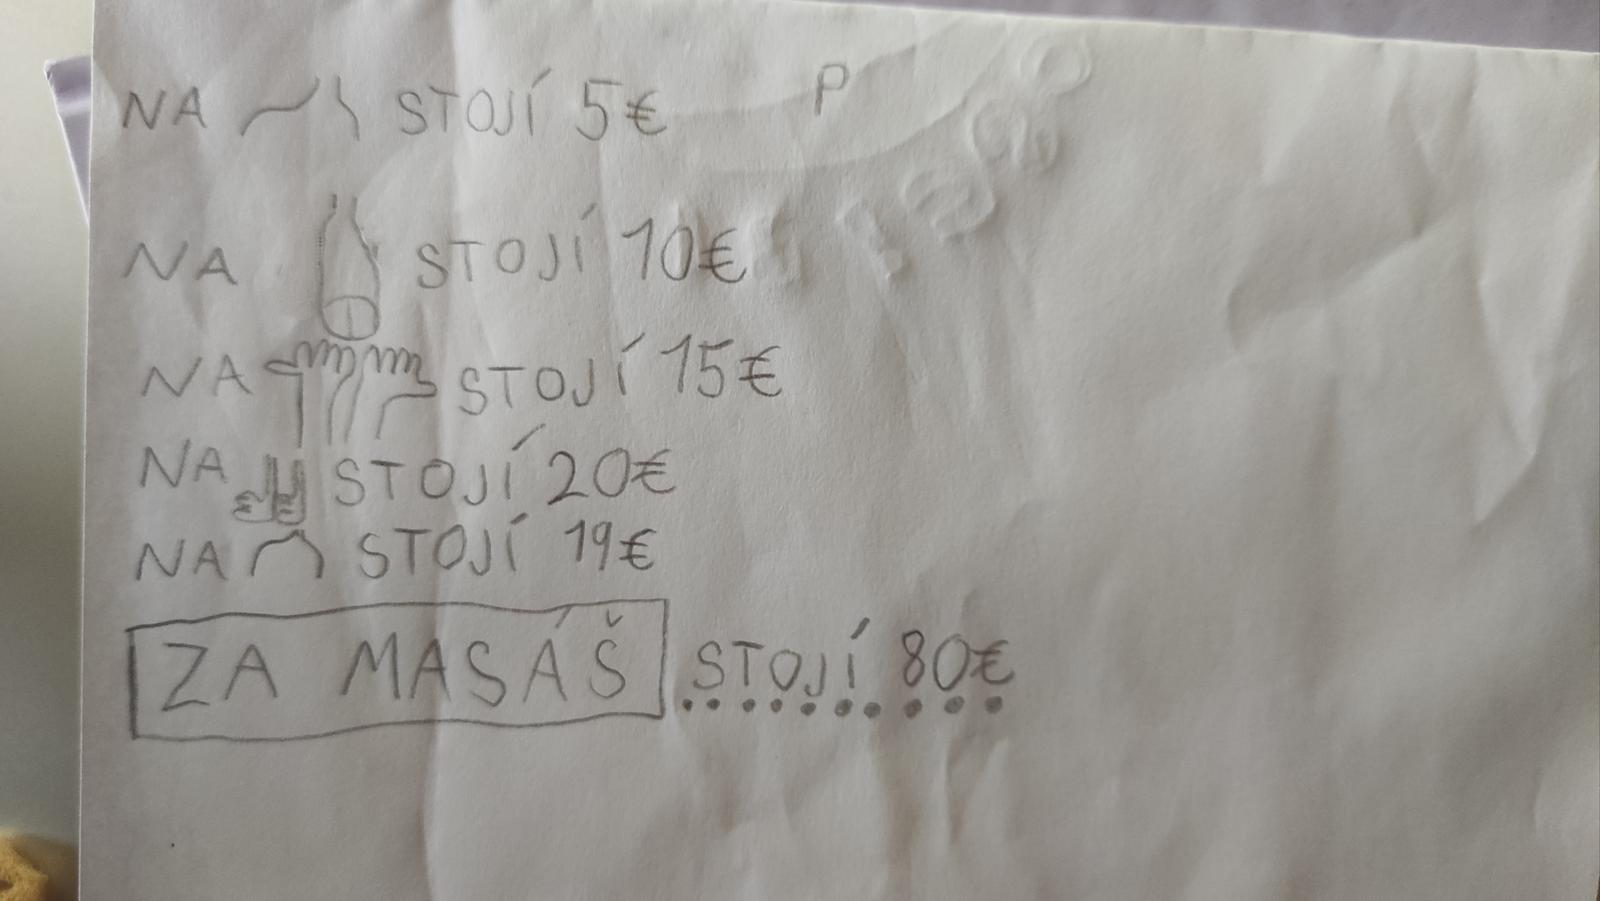 NA STOJÍ 5€
P
NA STOJÍ 10€
NA STOJÍ 15€
NA STOJÍ 20€
NA STOJÍ 19€
ZA MASÁŠ STOJÍ 80€